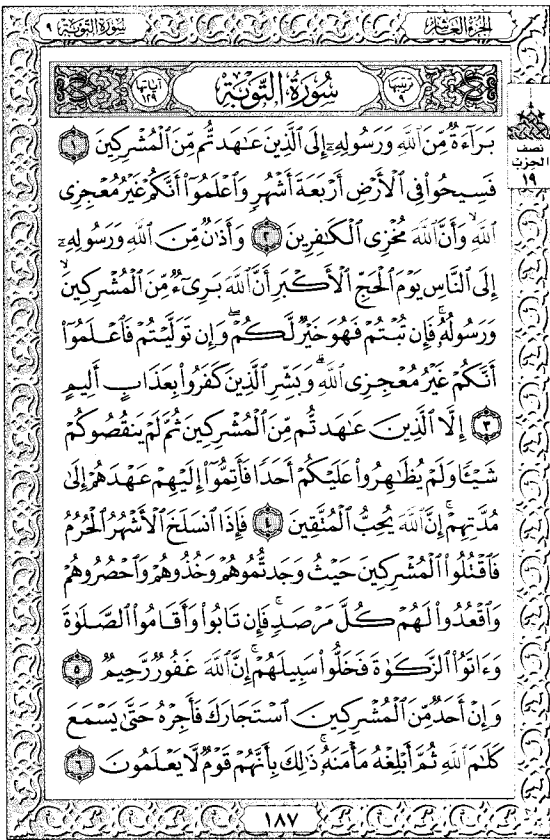 سُورَةُ التَّوْبَةِ ٩
الجُزْءُ العَاشِرُ
آياتها ١٢٩
سُورَةُ التَّوْبَةِ
ترتيبها ٩
نصف الحزب ١٩
بَرَآءَةٌ مِّنَ ٱللَّهِ وَرَسُولِهِۦٓ إِلَى ٱلَّذِينَ عَٰهَدتُّم مِّنَ ٱلْمُشْرِكِينَ ١
فَسِيحُوا۟ فِى ٱلْأَرْضِ أَرْبَعَةَ أَشْهُرٍ وَٱعْلَمُوٓا۟ أَنَّكُمْ غَيْرُ مُعْجِزِى
ٱللَّهِ ۙ وَأَنَّ ٱللَّهَ مُخْزِى ٱلْكَٰفِرِينَ ٢ وَأَذَٰنٌ مِّنَ ٱللَّهِ وَرَسُولِهِۦٓ
إِلَى ٱلنَّاسِ يَوْمَ ٱلْحَجِّ ٱلْأَكْبَرِ أَنَّ ٱللَّهَ بَرِىٓءٌ مِّنَ ٱلْمُشْرِكِينَ ۙ
وَرَسُولُهُۥ ۚ فَإِن تُبْتُمْ فَهُوَ خَيْرٌ لَّكُمْ ۖ وَإِن تَوَلَّيْتُمْ فَٱعْلَمُوٓا۟
أَنَّكُمْ غَيْرُ مُعْجِزِى ٱللَّهِ ۗ وَبَشِّرِ ٱلَّذِينَ كَفَرُوا۟ بِعَذَابٍ أَلِيمٍ
٣ إِلَّا ٱلَّذِينَ عَٰهَدتُّم مِّنَ ٱلْمُشْرِكِينَ ثُمَّ لَمْ يَنقُصُوكُمْ
شَيْـًٔا وَلَمْ يُظَٰهِرُوا۟ عَلَيْكُمْ أَحَدًا فَأَتِمُّوٓا۟ إِلَيْهِمْ عَهْدَهُمْ إِلَىٰ
مُدَّتِهِمْ ۚ إِنَّ ٱللَّهَ يُحِبُّ ٱلْمُتَّقِينَ ٤ فَإِذَا ٱنسَلَخَ ٱلْأَشْهُرُ ٱلْحُرُمُ
فَٱقْتُلُوا۟ ٱلْمُشْرِكِينَ حَيْثُ وَجَدتُّمُوهُمْ وَخُذُوهُمْ وَٱحْصُرُوهُمْ
وَٱقْعُدُوا۟ لَهُمْ كُلَّ مَرْصَدٍ ۚ فَإِن تَابُوا۟ وَأَقَامُوا۟ ٱلصَّلَوٰةَ
وَءَاتَوُا۟ ٱلزَّكَوٰةَ فَخَلُّوا۟ سَبِيلَهُمْ ۚ إِنَّ ٱللَّهَ غَفُورٌ رَّحِيمٌ ٥
وَإِنْ أَحَدٌ مِّنَ ٱلْمُشْرِكِينَ ٱسْتَجَارَكَ فَأَجِرْهُ حَتَّىٰ يَسْمَعَ
كَلَٰمَ ٱللَّهِ ثُمَّ أَبْلِغْهُ مَأْمَنَهُۥ ۚ ذَٰلِكَ بِأَنَّهُمْ قَوْمٌ لَّا يَعْلَمُونَ ٦
١٨٧